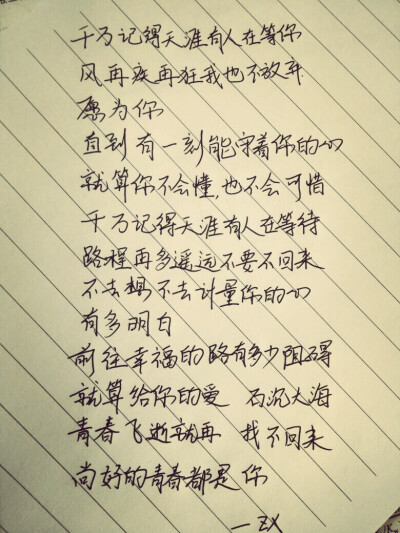 千万记得天涯有人在等你
风再疾再狂我也不放弃
愿为你
直到有一刻能守着你的心
就算你不会懂,也不会可惜
千万记得天涯有人在等待
路程再多遥远不要不回来
不去想不去计量你的心
有多明白
前往幸福的路有多少阻碍
就算给你的爱 石沉大海
青春飞逝就再 找不回来
尚好的青春都是 你
—ZX